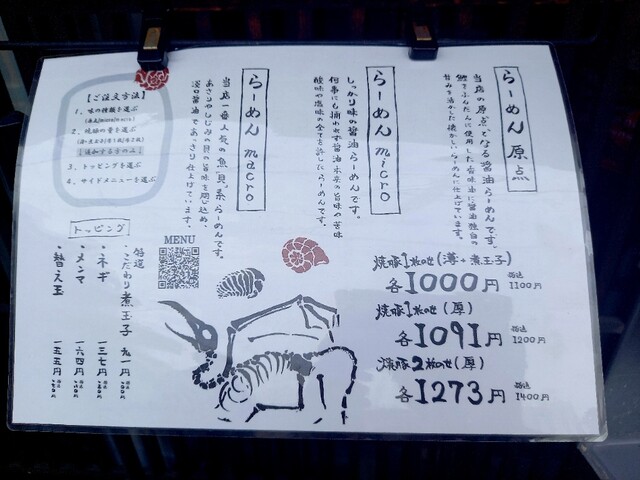 らーめん 原点
当店の原点となる醤油らーめんです。
鰹をふんだんに使用した旨味油に醤油独自の
甘みを活かした懐かしいらーめんに仕上げています。
らーめん micro
しっかり味の醤油らーめんです。
何事にも捕われず醤油本来の旨味や苦味
酸味や塩味の全てを活したらーめんです。
らーめん macro
当店一番人気の魚貝系らーめんです。
あさりやしじみの貝の旨味を閉じ込め、
淡口醤油であっさり仕上げています。
【ご注文方法】
1、味の種類を選ぶ
2、焼豚の量を選ぶ
3、トッピングを選ぶ
4、サイドメニューを選ぶ
トッピング
特選
こだわり煮玉子 九一円
・ネギ 一三七円
・メンマ 一六四円
・替え玉 一五五円
MENU
焼豚1枚のせ(薄+煮玉子)
各1000円 税込1100円
焼豚1枚のせ(厚)
各1091円 税込1200円
焼豚2枚のせ(厚)
各1273円 税込1400円